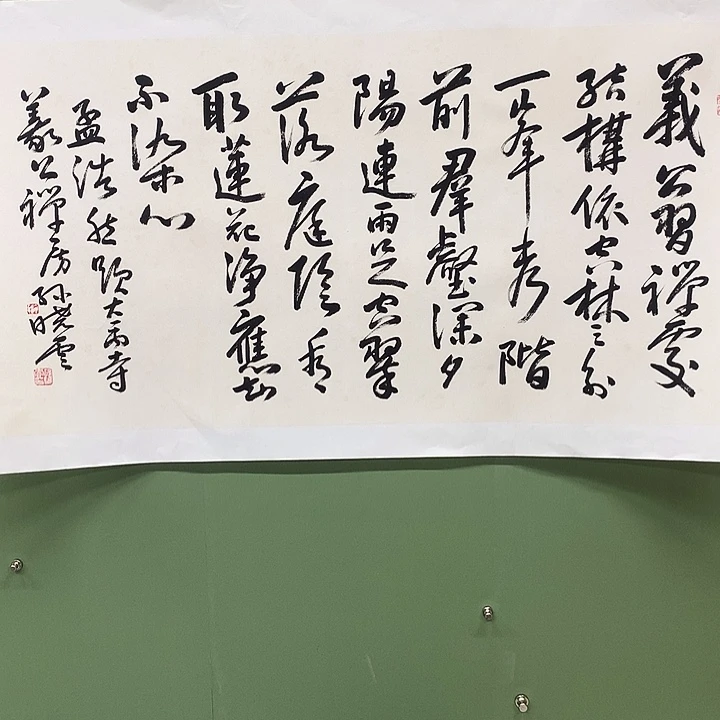 義公習禪處
結構依空林戶外
一峯秀階
前羣壑深夕
陽連雨足空翠
落庭陰看
取蓮花淨應知
不染心
孟浩然題大禹寺
義公禪房孫曉雲